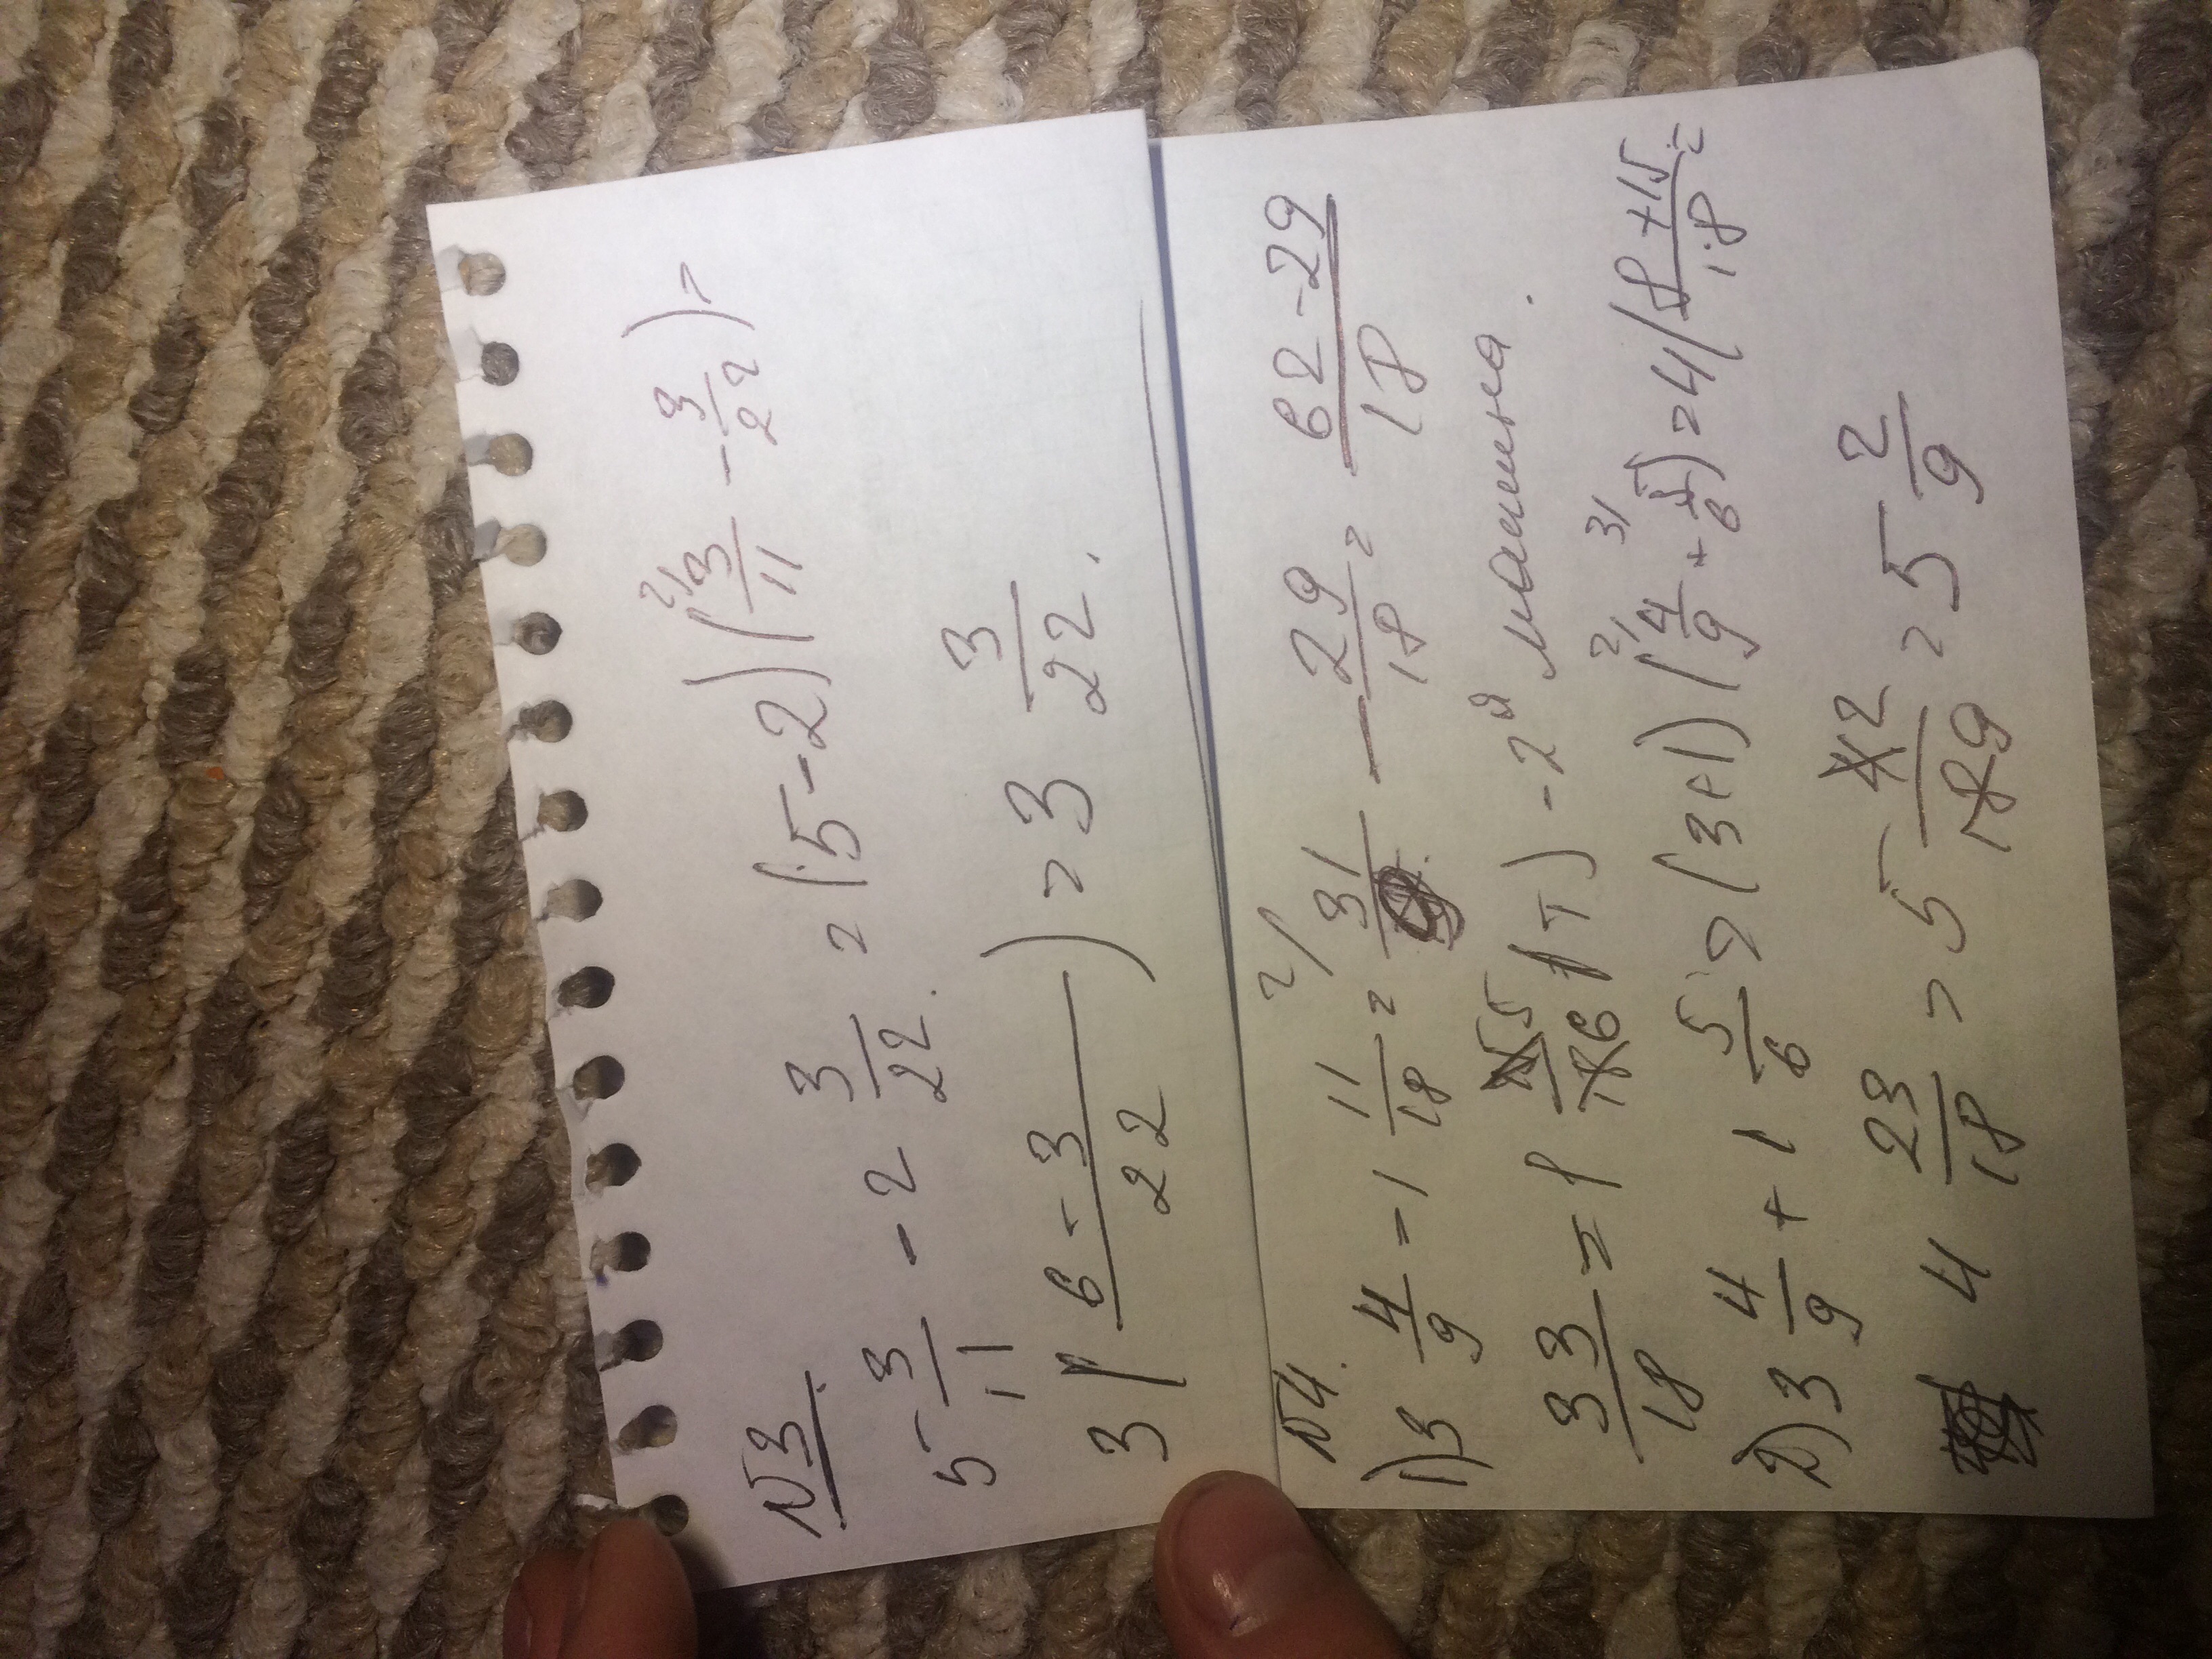 №3
5 3/11 - 2 3/22 = (5-2)(2/ 3/11 - 3/22) =
3 (6-3/22) = 3 3/22.
№4.
1) 3 4/9 - 1 11/18 = 2/ 31/9 - 29/18 = 62-29/18
33/18 = 1 5/6 (т) - 2й машина.
2) 3 4/9 + 1 5/6 = (3+1)(2/ 4/9 + 3/ 5/6) = 4(8+15/18 =
4 23/18 = 5 2/9 = 5 2/9